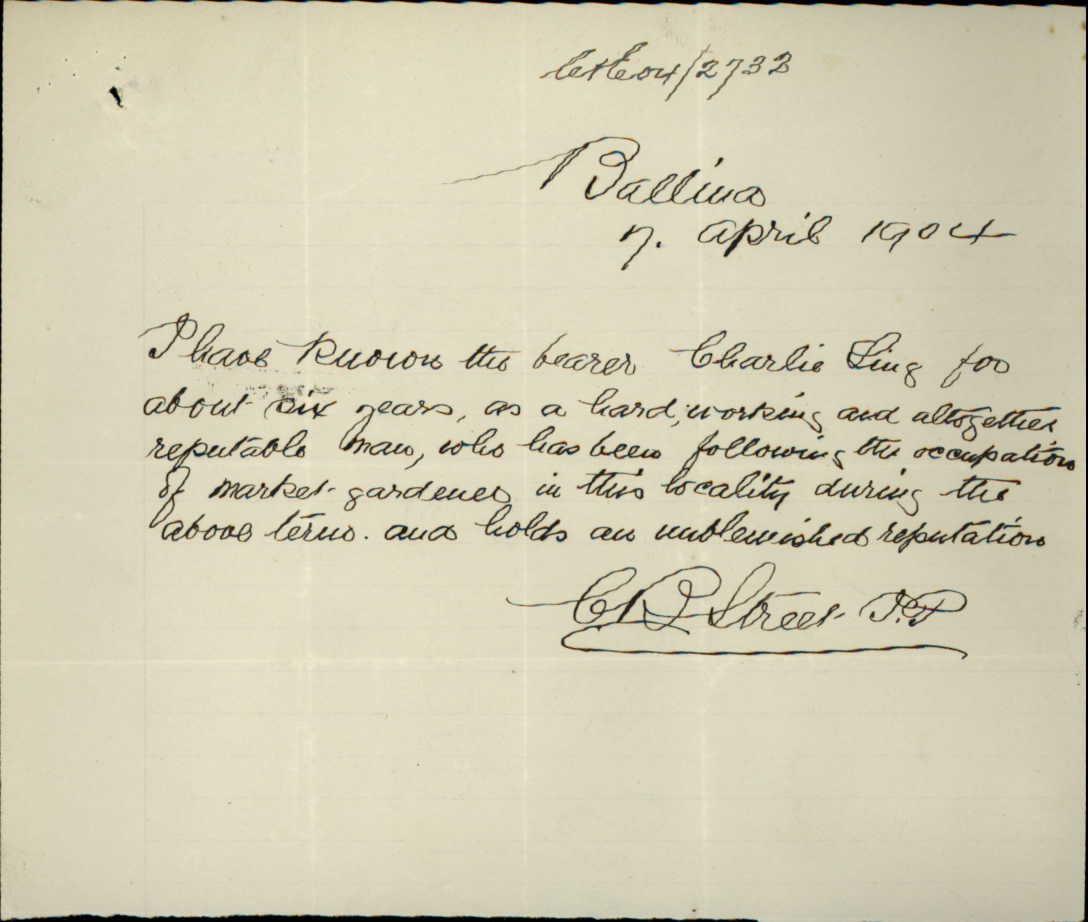 04/2732
Ballina
7. April 1904
I have known the bearer Charlie Ling for
about six years, as a hard, working and altogether
reputable man, who has been following the occupation
of market-gardener in this locality during the
above term. and holds an unblemished reputation
Street J.P